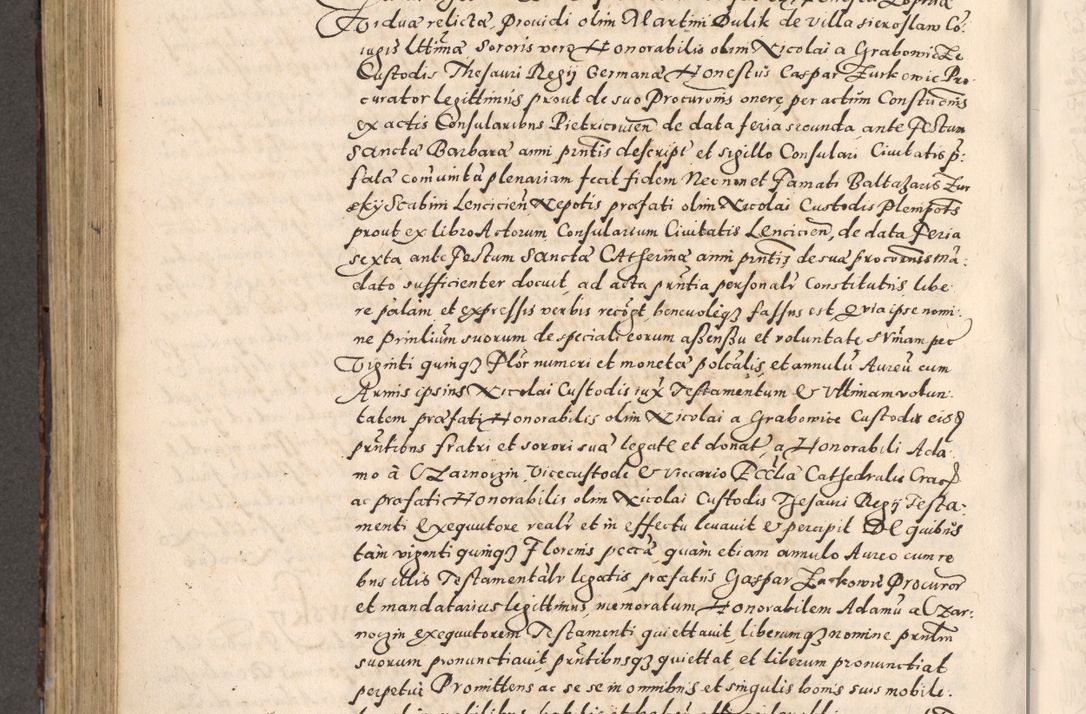 Vidua relicta Providi olim Martini Dulik de villa sieroslaw Co:
iugis Ultima sororis vero Honorabilis olim Nicolai a Grabowicze
Custodis Thesauri Regij Germana Honestus Caspar Zurkowic Pro
curator legittimus prout de suo Procuronis onere per actum Constuonis
ex actis Consularibus Pietricouien de data feria secunda ante Festum
Sanctæ Barbaræ anni pnntis descript et sigillo Consulari Ciuitatis p:
fatæ comunita plenariam fecit fidem Necnon et Famati Baltazaris Zur
ekij Scabini Lencicien Nepotis præfati olim Nicolai Custodis Plenipots
prout ex libro Actorum Consularium Ciuitatis Lencicien, de data Feria
sexta ante Festum Sanctæ Catherinæ anni pnntis de sua procoronis má:
dato sufficienter docuit, ad acta pnntia personalr Constitutus libe
re palam et expressis verbis recogt beneuoleq3 fassus est, Quia ipse nomi:
ne Prinlium suorum de speciali eorum assensu et voluntate sumam pec
Viginti quinq3 Flor numeri et monetæ polcalis, et annulu Aureu cum
Armis ipsius Nicolai Custodis iux Testamentum & Ultimam volun:
tatem præfati Honorabilis olim Nicolai a Grabowice Custodis eisd
pnntibus fratri et sorori suæ legat et donat, a Honorabili Ada
mo à Czarnozin, Vicecustode & Viccario Ecclia Cathedralis Crac
ac præfati Honorabilis olim Nicolai Custodis Thesauri Regij Testa:
menti Exequutore realr et in effectu leuauit & percipit De quibus
tam viginti quinq3 Florenis pecca, quam etiam annulo Aureo cum re
bus illis Testamentalr legatis, præfatus Gaspar Zurkowic Procuror
et mandatarius legittimus, memoratum, Honorabilem Adamu a Czar:
nozin exequutorem Testamenti quiettauit liberumq3 nomine prnlm
suorum pronunctiauit, pnntibusq3 quiettat et liberum pronunctiat
perpetui Promittens ac se se in omnibus et singulis bonis suis mobili: